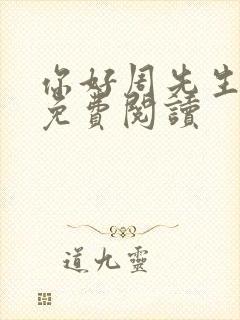 你好周先生
免費閱讀
道九靈